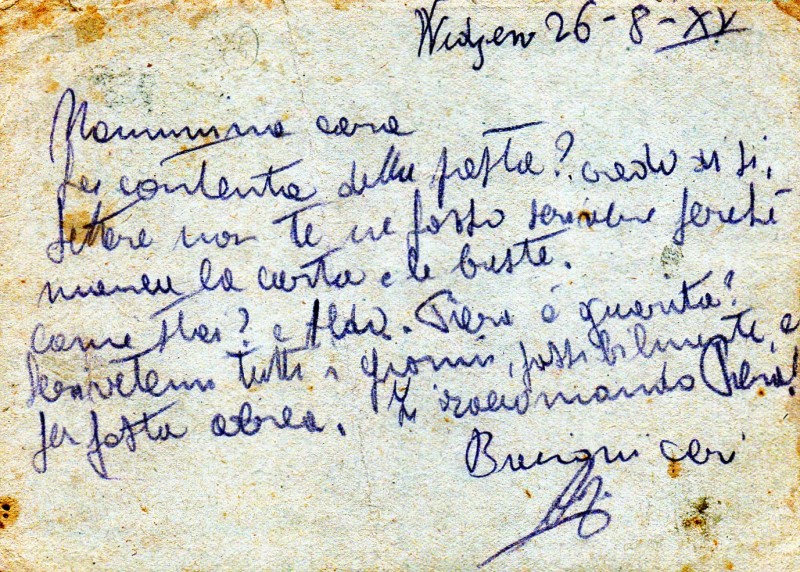 26-8-XV
Mammina cara
Sei contenta della posta? credo di si,
lettere non te ne posso scrivere perché
manca la carta e le buste.
come stai? e Aldo. Piera è guarita?
scrivetemi tutti i giorni, possibilmente, e
per posta aerea. Mi raccomando Piera!
Bacioni cari